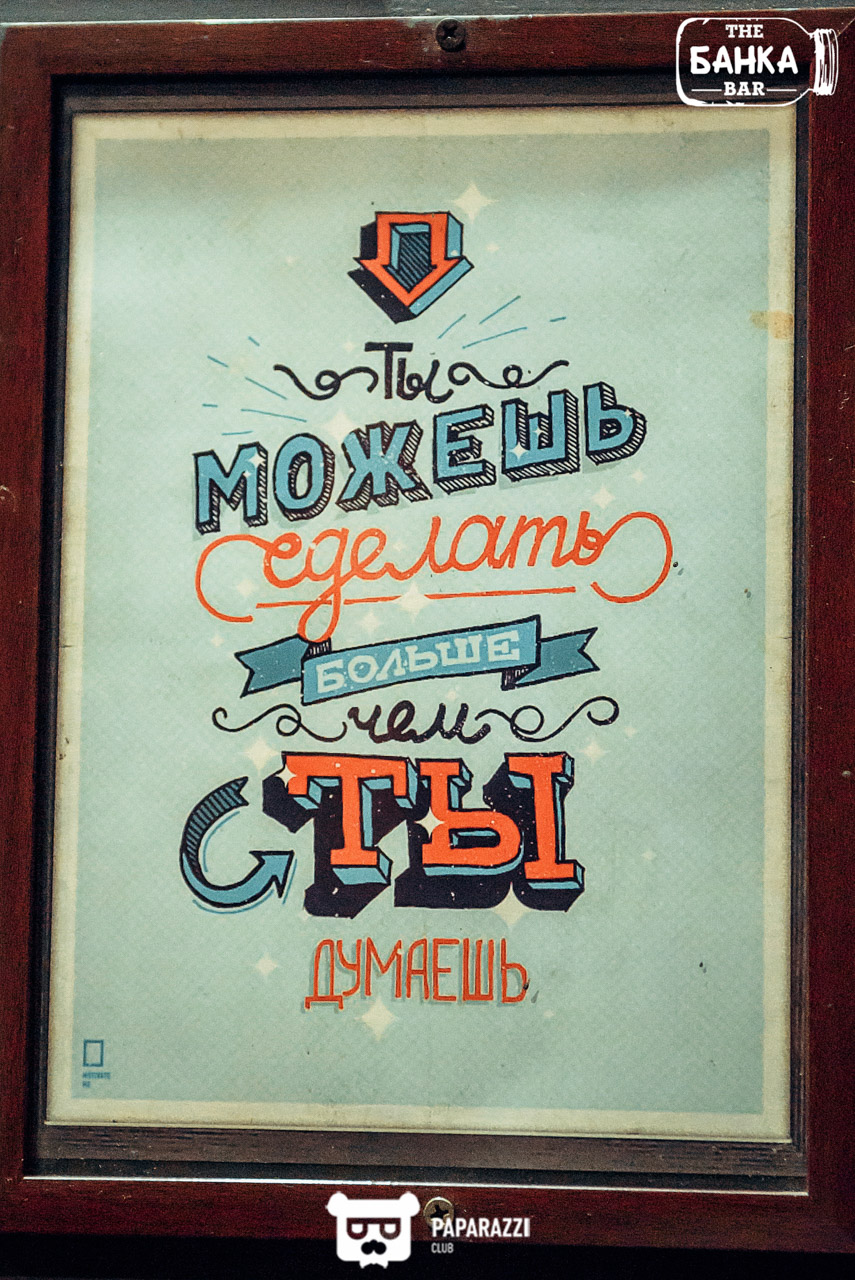 THE
БАНКА
BAR
Ты
МОЖЕШЬ
сделать
БОЛЬШЕ
чем
ТЫ
ДУМАЕШЬ
PAPARAZZI
CLUB